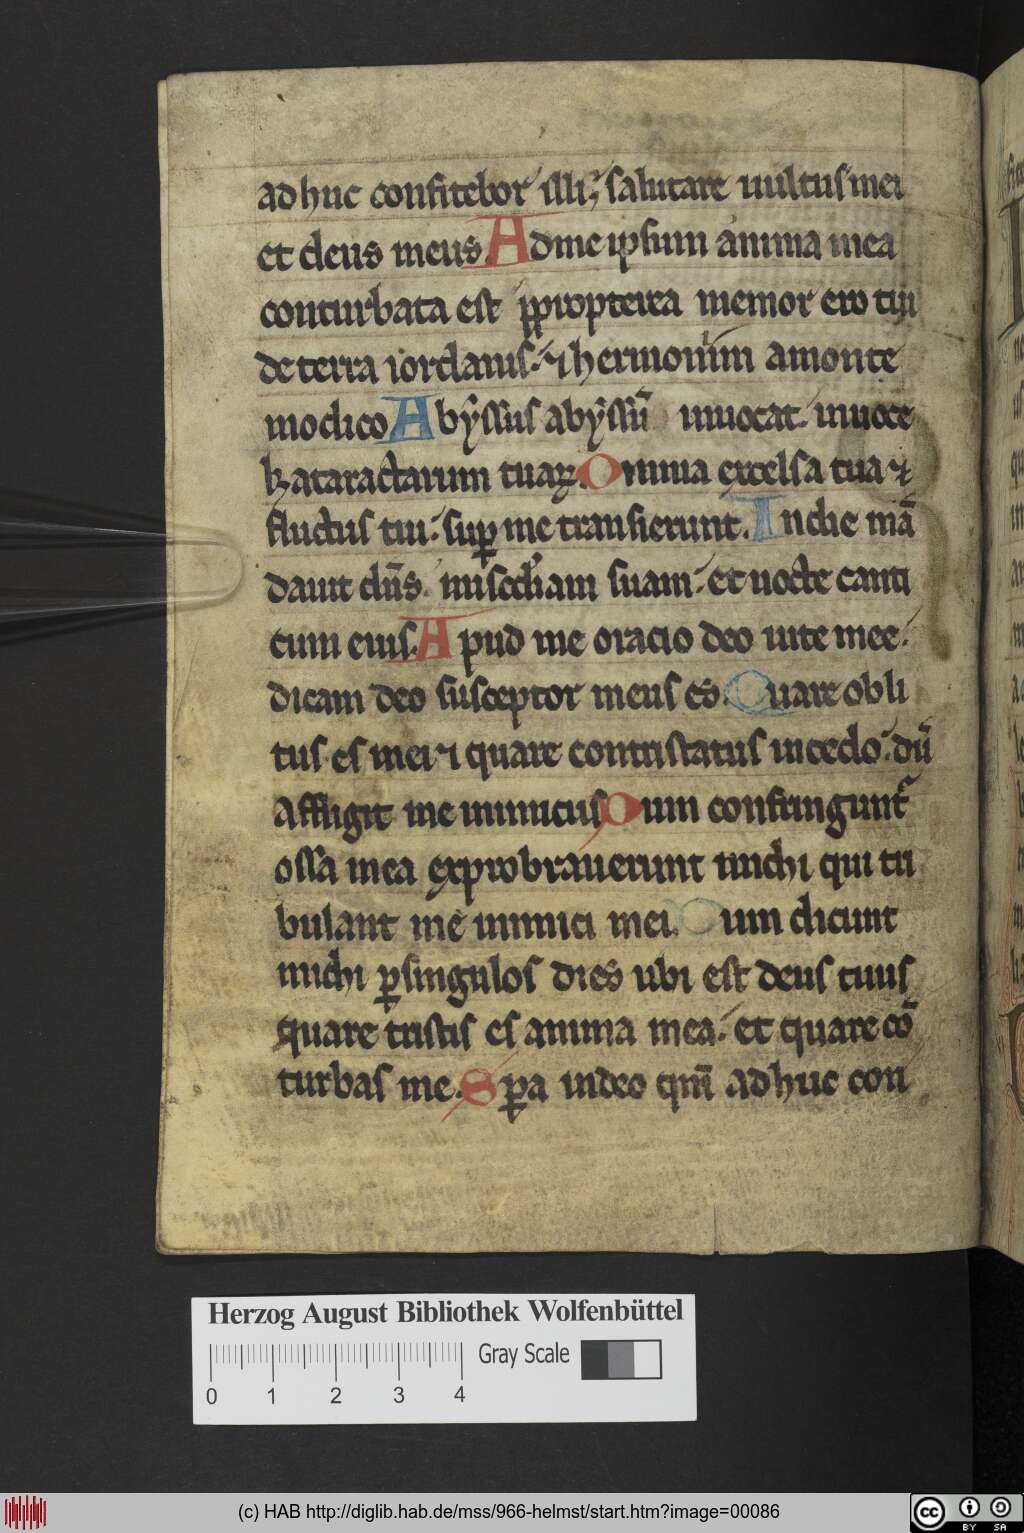 adhuc confitebor illi; salutare uultus mei
et deus meus. Ad me ipsum anima mea
conturbata est ppropterea memor ero tui
de terra iordanis. ⁊ hermoniim a monte
modico Abyssus abyssū inuocat. in uoce
kataractarum tuaꝝ. Omnia excelsa tua ⁊
fluctus tui. suꝑ me transierunt. In die mā
dauit dn̄s. misc̄diam suam. et nocte canti
cum eius. Apud me oracio deo uite mee.
dicam deo susceptor meus es. Quare obli
tus es mei ⁊ quare contristatus incedo. dū
affligit me inimicus Dum confringunt᷑
ossa mea exprobrauerunt michi qui tri
bulant me inimici mei. Dum dicunt
michi ꝑ singulos dies ubi est deus tuus
quare tristis es anima mea. et quare cō
turbas me. Sꝑa in deo qm̄ adhuc con
Herzog August Bibliothek Wolfenbüttel
Gray Scale
0 1 2 3 4
(c) HAB http://diglib.hab.de/mss/966-helmst/start.htm?image=00086
CC BY SA